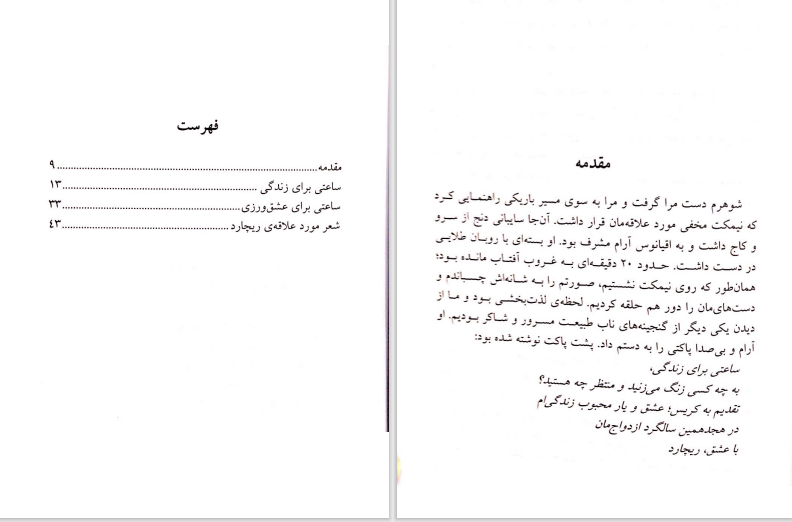 مقدمه
شوهرم دست مرا گرفت و مرا به سوی مسیر باریکی راهنمایی کرد
که نیمکت مخفی مورد علاقه‌مان قرار داشت. آن‌جا سایبانی دنج از سرو
و کاج داشت و به اقیانوس آرام مشرف بود. او بسته‌ای با روبان طلایی
در دست داشت. حدود ۲۰ دقیقه‌ای به غروب آفتاب مانده بود؛
همان‌طور که روی نیمکت نشستیم، صورتم را به شانه‌اش چسباندم و
دست‌های‌مان را دور هم حلقه کردیم. لحظه‌ی لذت‌بخشی بود و ما از
دیدن یکی دیگر از گنجینه‌های ناب طبیعت مسرور و شاکر بودیم. او
آرام و بی‌صدا پاکتی را به دستم داد. پشت پاکت نوشته شده بود:
ساعتی برای زندگی،
به چه کسی زنگ می‌زنید و منتظر چه هستید؟
تقدیم به کریس؛ عشق و یار محبوب زندگی‌ام
در هجدهمین سالگرد ازدواج‌مان
با عشق، ریچارد
فهرست
مقدمه ........ ۹
ساعتی برای زندگی ........ ۱۳
ساعتی برای عشق‌ورزی ........ ۳۳
شعر مورد علاقه‌ی ریچارد ........ ۴۳